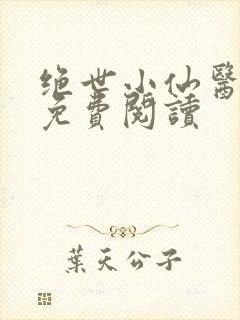 绝世小仙醫
免費閱讀
葉天公子